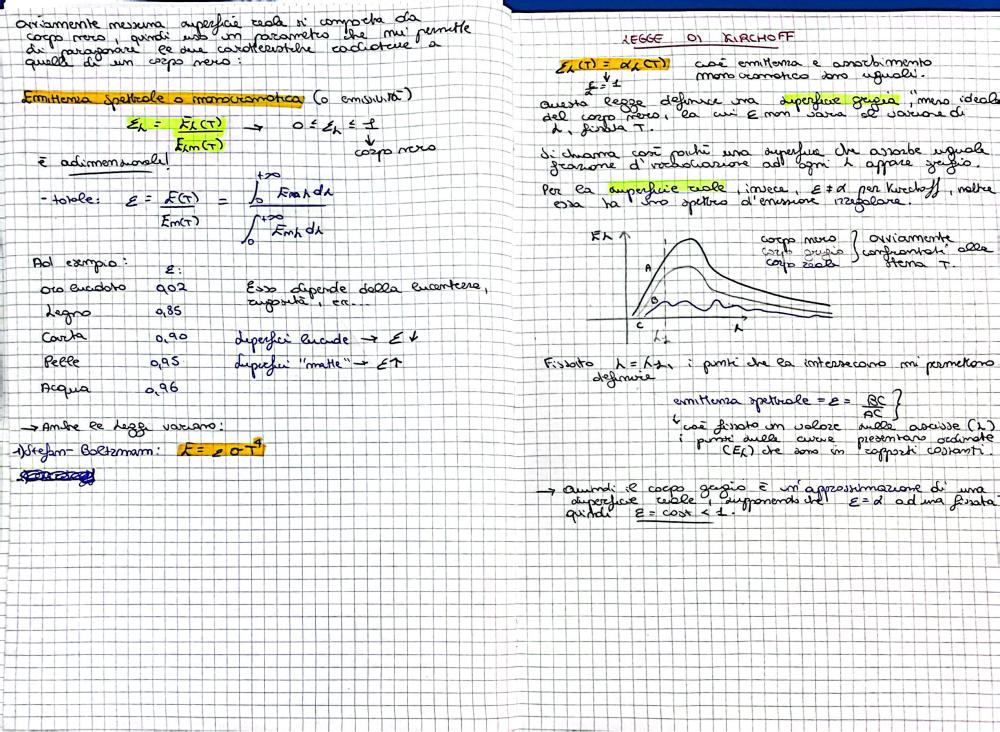 Ovviamente nessuna superficie reale si comporta da
corpo nero, quindi uso un parametro che mi permette
di paragonare le due caratteristiche radiative a
quella di un corpo nero:
Emittenza spettrale o monocromatica (o emissività)
ελ = Eλ(T) / Eλm(T) → 0 ≤ ελ ≤ 1
↓ corpo nero
È adimensionale!
- totale: ε = E(T) / Em(T) = ∫₀^+∞ Emλ dλ / ∫₀^+∞ Emλ dλ
Ad esempio: ε:
oro lucidato 0,02 Esso dipende dalla lucentezza,
rugosità, ecc...
Legno 0,85
Carta 0,90 superfici lucide → ε ↓
Pelle 0,95 superfici "matte" → ε ↑
Acqua 0,96
→ Anche le leggi variano:
1) Stefan-Boltzmann: E = ε σ T⁴
LEGGE DI KIRCHOFF
ελ(T) = αλ(T) cioè emittenza e assorbimento
monocromatico sono uguali.
Questa legge definisce una superficie grigia, "meno ideale"
del corpo nero, la cui ε non varia al variare di
λ, fissata T.
Si chiama così poiché una superficie che assorbe uguale
frazione d'irradiazione ad ogni λ appare grigia.
Per la superficie reale, invece, ε ≠ α per Kirchoff, inoltre
essa ha uno spettro d'emissione irregolare.
Eλ
A
B
C
λ1
λ
corpo nero
corpo grigio
corpo reale
} ovviamente
confrontati alla
stessa T.
Fissato λ = λ1, i punti che la intersecano mi permettono
definire
emittenza spettrale = ε = BC / AC }
↳ cioè fissato un valore sulle ascisse (λ)
i punti sulle curve presentano ordinate
(Eλ) che sono in rapporti costanti.
→ Quindi il corpo grigio è un'approssimazione di una
superficie reale, supponendo che ε = α ad una fissata
quindi ε = cost < 1.